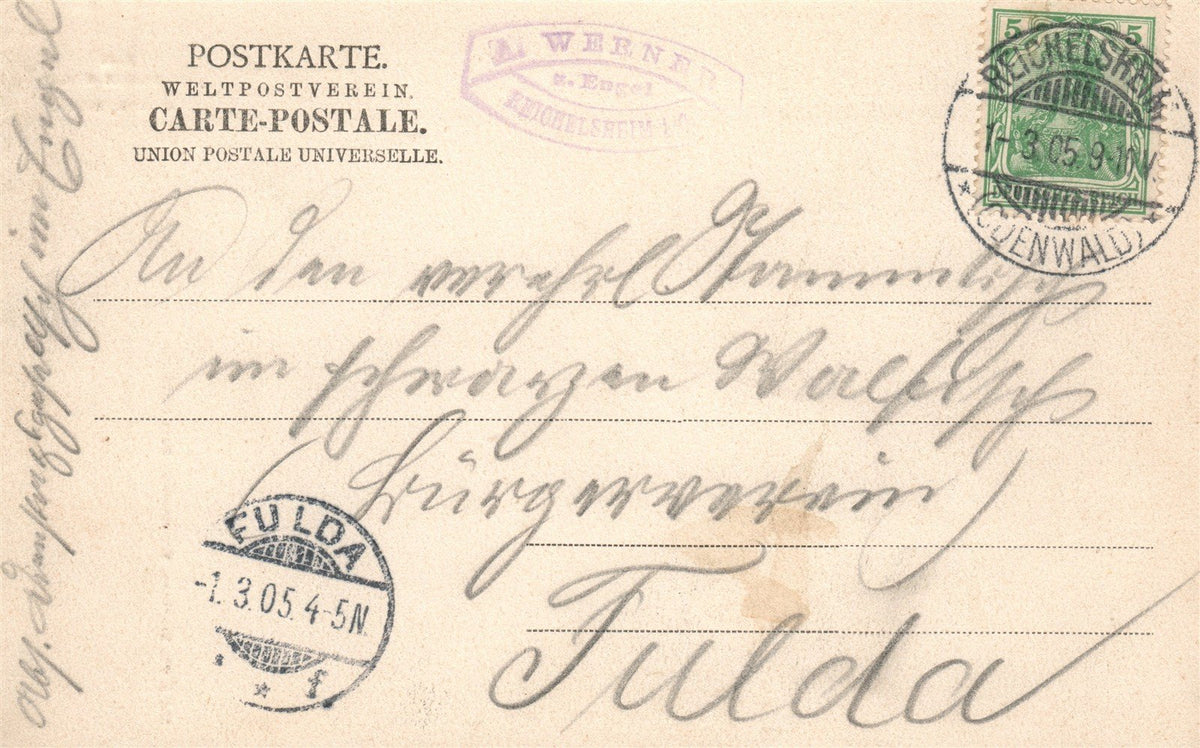 POSTKARTE.
WELTPOSTVEREIN.
CARTE-POSTALE.
UNION POSTALE UNIVERSELLE.
A. WERNER
z. Engel
REICHELSHEIM i/O
5 5
REICHELSHEIM
1- 3 05. 9-10 V.
(ODENWALD)
An den verehrl Stammtisch
im schwarzen Walfisch
(Bürgerverein)
Fulda
FULDA
-1. 3. 05. 4-5 N.
f
Abs. im Engel